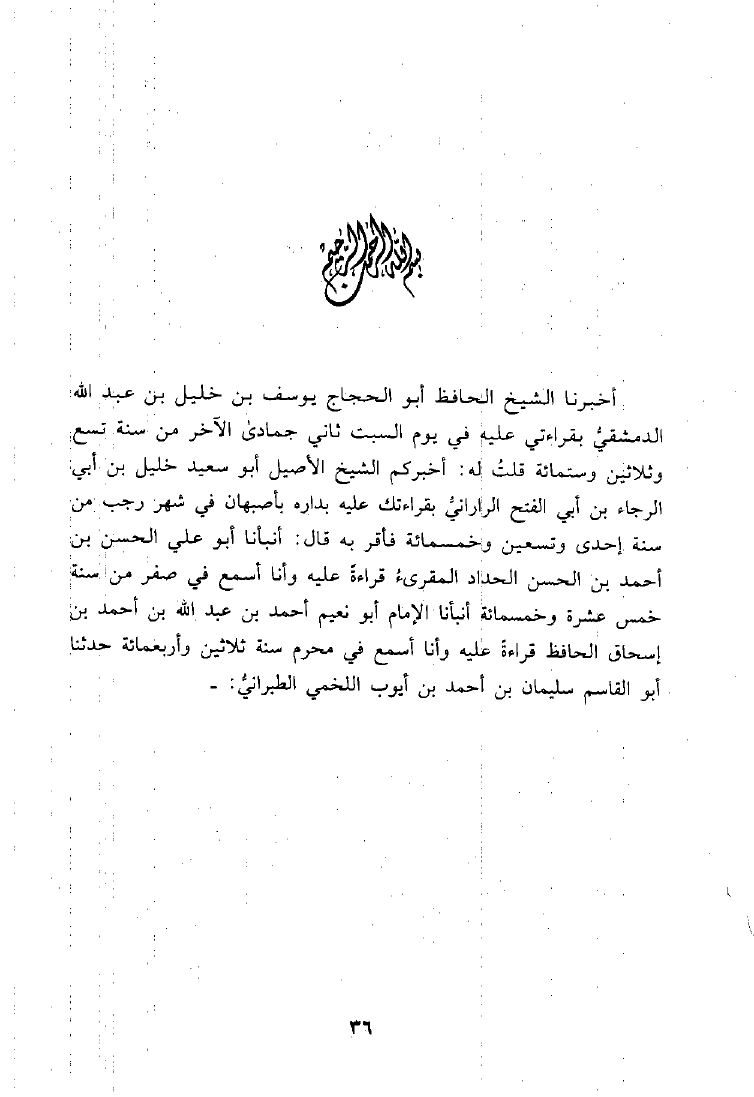 بسم الله الرحمن الرحيم
أخبرنا الشيخ الحافظ أبو الحجاج يوسف بن خليل بن عبد الله
الدمشقيُّ بقراءتي عليه في يوم السبت ثاني جمادىٰ الآخر من سنة تسع
وثلاثين وستمائة قلتُ له: أخبركم الشيخ الأصيل أبو سعيد خليل بن أبي
الرجاء بن أبي الفتح الرارانيُّ بقراءتك عليه بداره بأصبهان في شهر رجب من
سنة إحدى وتسعين وخمسمائة فأقر به قال: أنبأنا أبو علي الحسن بن
أحمد بن الحسن الحداد المقرىءُ قراءةً عليه وأنا أسمع في صفر من سنة
خمس عشرة وخمسمائة أنبأنا الإمام أبو نعيم أحمد بن عبد الله بن أحمد بن
إسحاق الحافظ قراءةً عليه وأنا أسمع في محرم سنة ثلاثين وأربعمائة حدثنا
أبو القاسم سليمان بن أحمد بن أيوب اللخمي الطبرانيُّ: ـ
٣٦